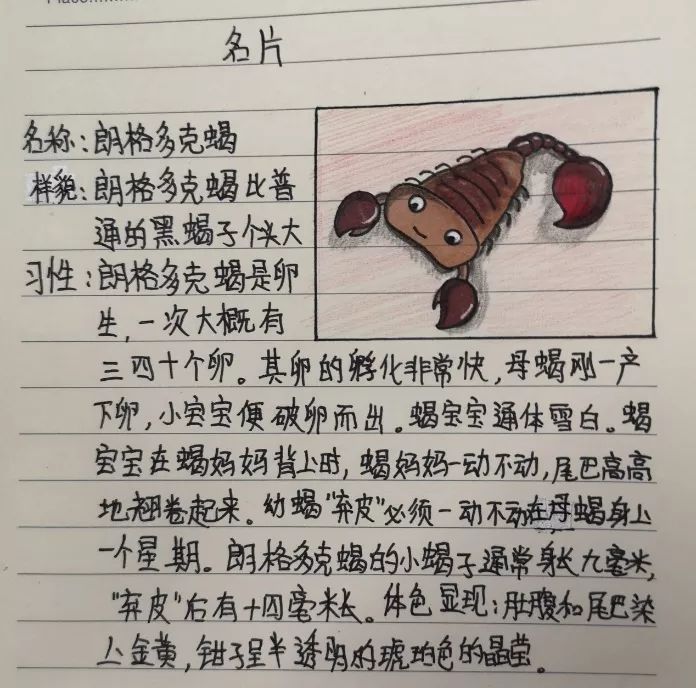 名片
名称:朗格多克蝎
样貌:朗格多克蝎比普
通的黑蝎子个头大
习性:朗格多克蝎是卵
生,一次大概有
三四十个卵。其卵的孵化非常快,母蝎刚一产
下卵,小宝宝便破卵而出。蝎宝宝通体雪白。蝎
宝宝在蝎妈妈背上时,蝎妈妈一动不动,尾巴高高
地翘卷起来。幼蝎“弃皮”必须一动不动在母蝎身上
一个星期。朗格多克蝎的小蝎子通常身长九毫米,
“弃皮”后有十四毫米长。体色显现:肚腹和尾巴染
上金黄,钳子呈半透明的琥珀色的晶莹。